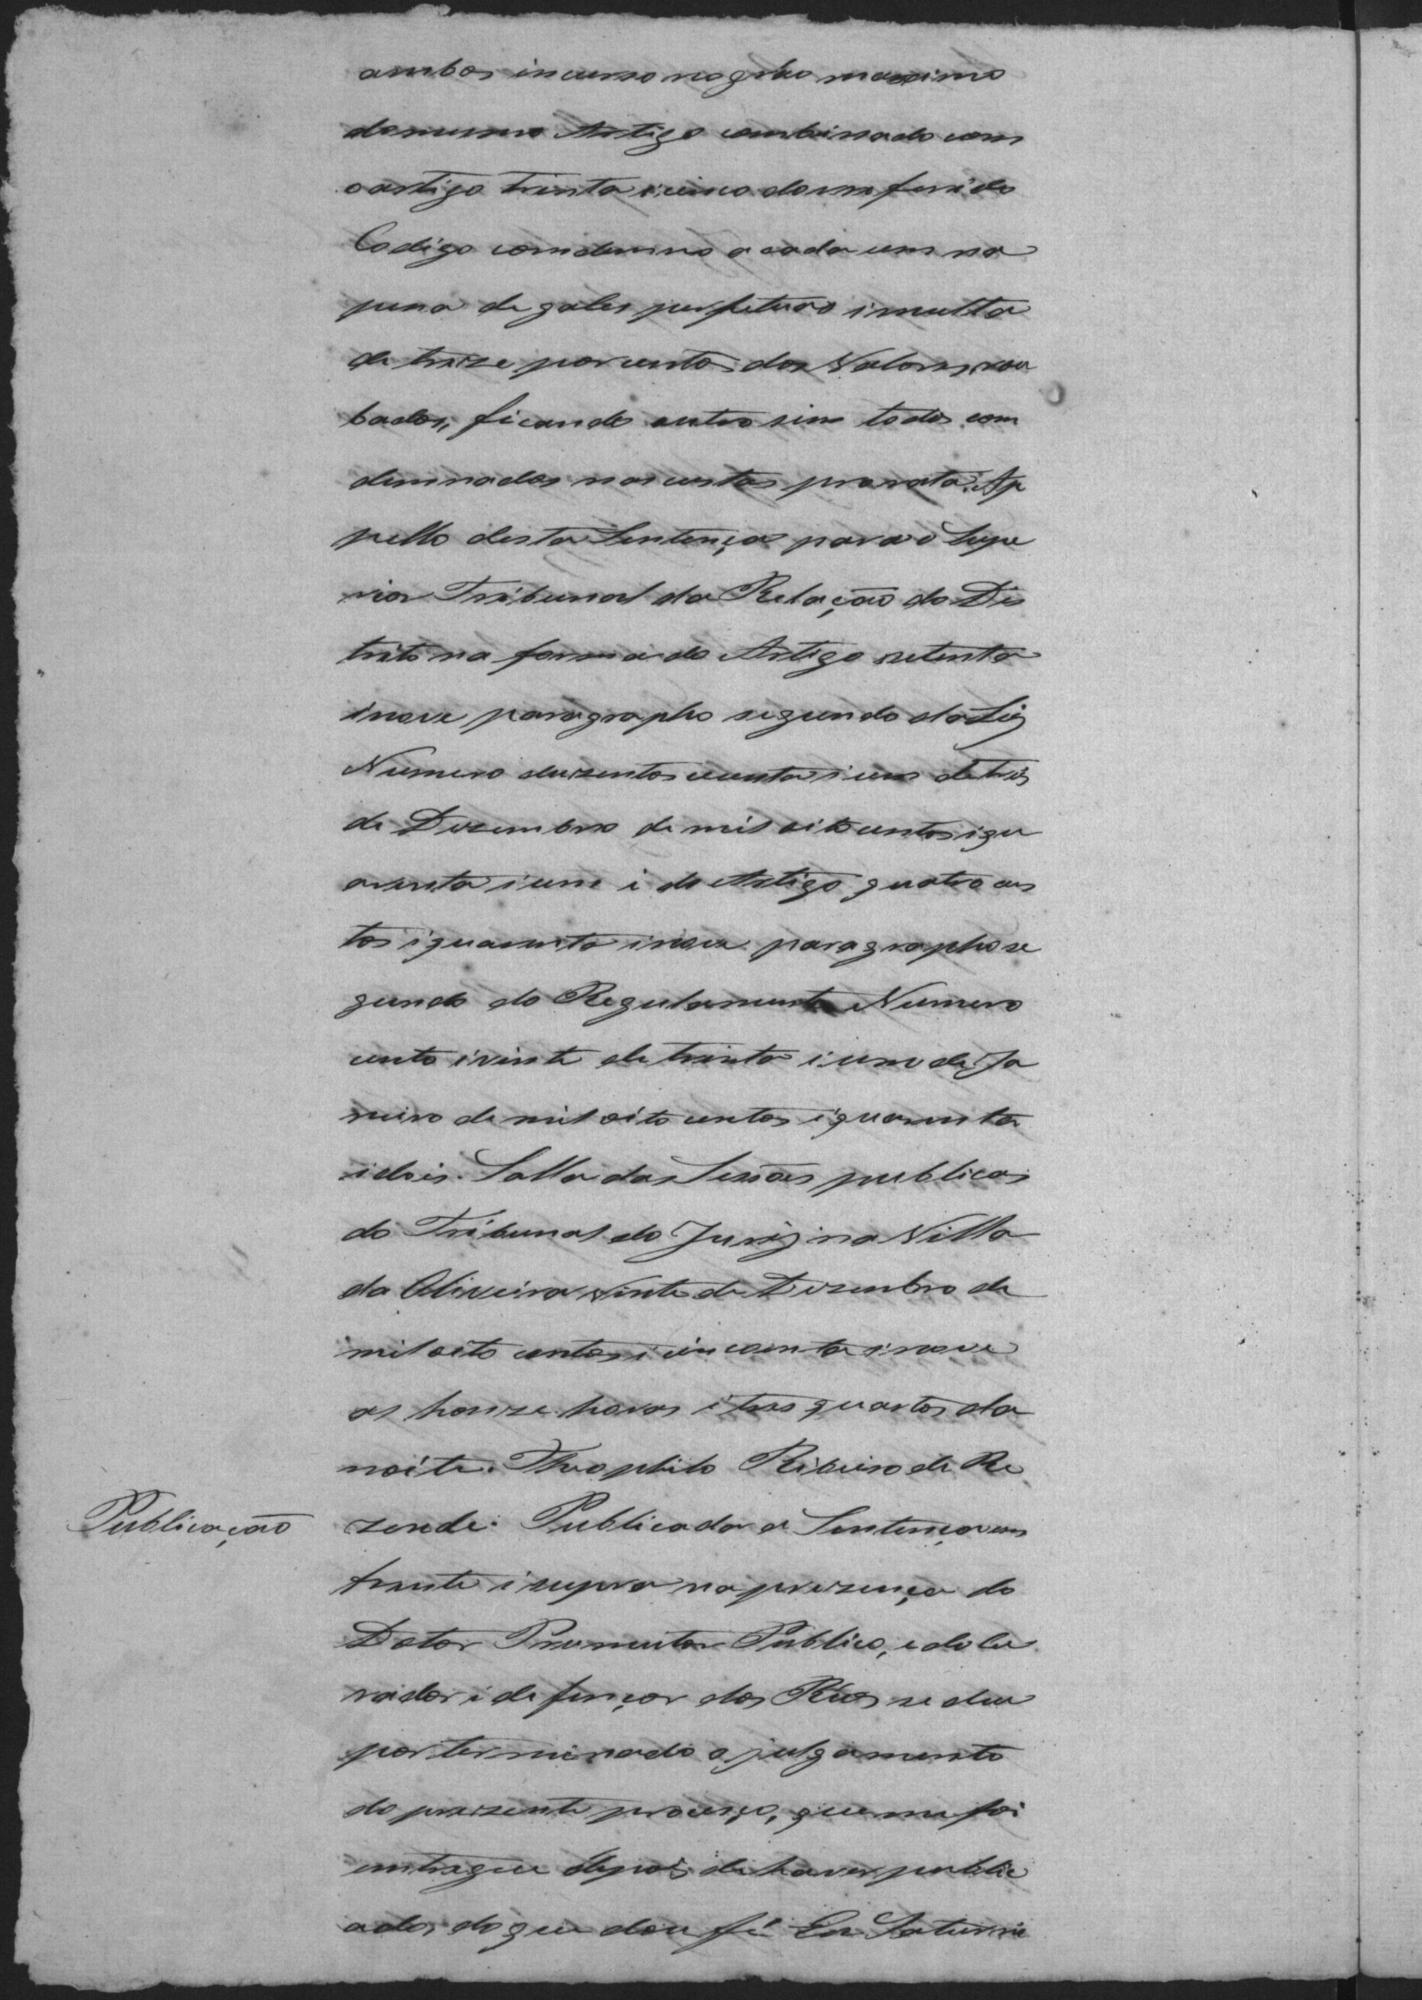 ambos incurso no gráo maximo
do mesmo Artigo combinado com
o artigo trinta i cinco do refferido
Codigo comdemno a cada um na
pena de gales perpetuas i multa
de treize por cento dos Valores rou
bados, ficando outro sim todos com
demnados nas custas pro rata. Ap
pello desta Sentença para o Supe
rior Tribunal da Relação do Dis
trito na forma do Artigo setenta
i nove paragrapho segundo da Leij
Numero duzentos cecenta i um de tres
de Dezembro de mil oito centos i qu
arenta i um i do Artigo quatro cen
tos i quarenta i nove paragrapho se
gundo do Regulamento Numero
cento i vinte de trinta i um de Ja
neiro de mil oito centos i quarenta
i dois. Salla das Sessões publicas
do Tribunal do Jurij na Villa
da Oliveira vinte de Dezembro de
mil oito centos i cincoenta i nove
as honze horas i tres quartos da
noite. Theophilo Ribeiro de Re
Publicação zende. Publicada a Sentença con
stante i supra na prezença do
Dotor Promutor Publico, e do Cu
rador i defençor dos Réos se deu
por terminado o julgamento
do prezente proceço, que me foi
entregue depois de haver public
ado, do que dou fé Eu Saturni